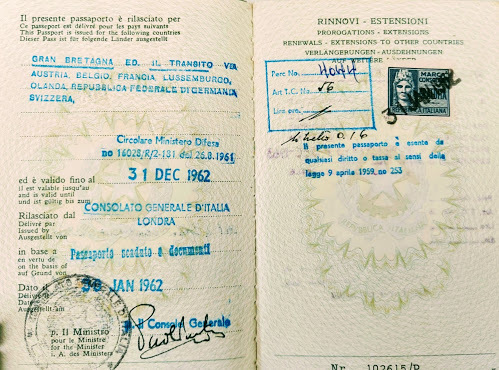 Il presente passaporto è rilasciato per
Ce passeport est délivré pour les pays suivants
This Passport is issued for the following countries
Dieser Pass ist für folgende Länder ausgestellt
GRAN BRETAGNA ED. IL TRANSITO VIA
AUSTRIA, BELGIO, FRANCIA, LUSSEMBURGO,
OLANDA, REPUBBLICA FEDERALE DI GERMANIA
SVIZZERA,
Circolare Ministero Difesa
no 16028/R/2-181 del 26.8.1961
ed è valido fino al
il est valable jusqu'au
and is valid until
und ist gültig bis zum
31 DEC 1962
Rilasciato dal
Délivré par
Issued by
Ausgestellt von
CONSOLATO GENERALE D'ITALIA
LONDRA
in base a
en vertu de
on the basis of
auf Grund von
Passaporto scaduto e documenti
Dato il
Délivré le
Date
Ausgestellt am
JAN 1962
p. Il Ministro
pour le Ministre
for the Minister
i. A. des Ministers
p. Il Console Generale
RINNOVI - ESTENSIONI
PROROGATIONS - EXTENSIONS
RENEWALS - EXTENSIONS TO OTHER COUNTRIES
VERLÄNGERUNGEN - AUSDEHNUNGEN
AUF WEITERE LÄNDER
Perc No. 4044
Art T.C. No. 56
Lire oro.
MARCA
REPUBBLICA ITALIANA
Il presente passaporto è esente da
qualsiasi diritto o tassa ai sensi della
legge 9 aprile 1959, no 253
Nr. 102615/P